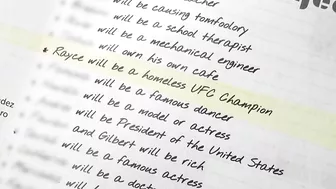 will be causing tomfoolery
will be a school therapist
will be a mechanical engineer
will own his own cafe
Rayce will be a homeless UFC Champion
will be a famous dancer
will be a model or actress
will be President of the United States
and Gilbert will be rich
will be a famous actress
will be a doct